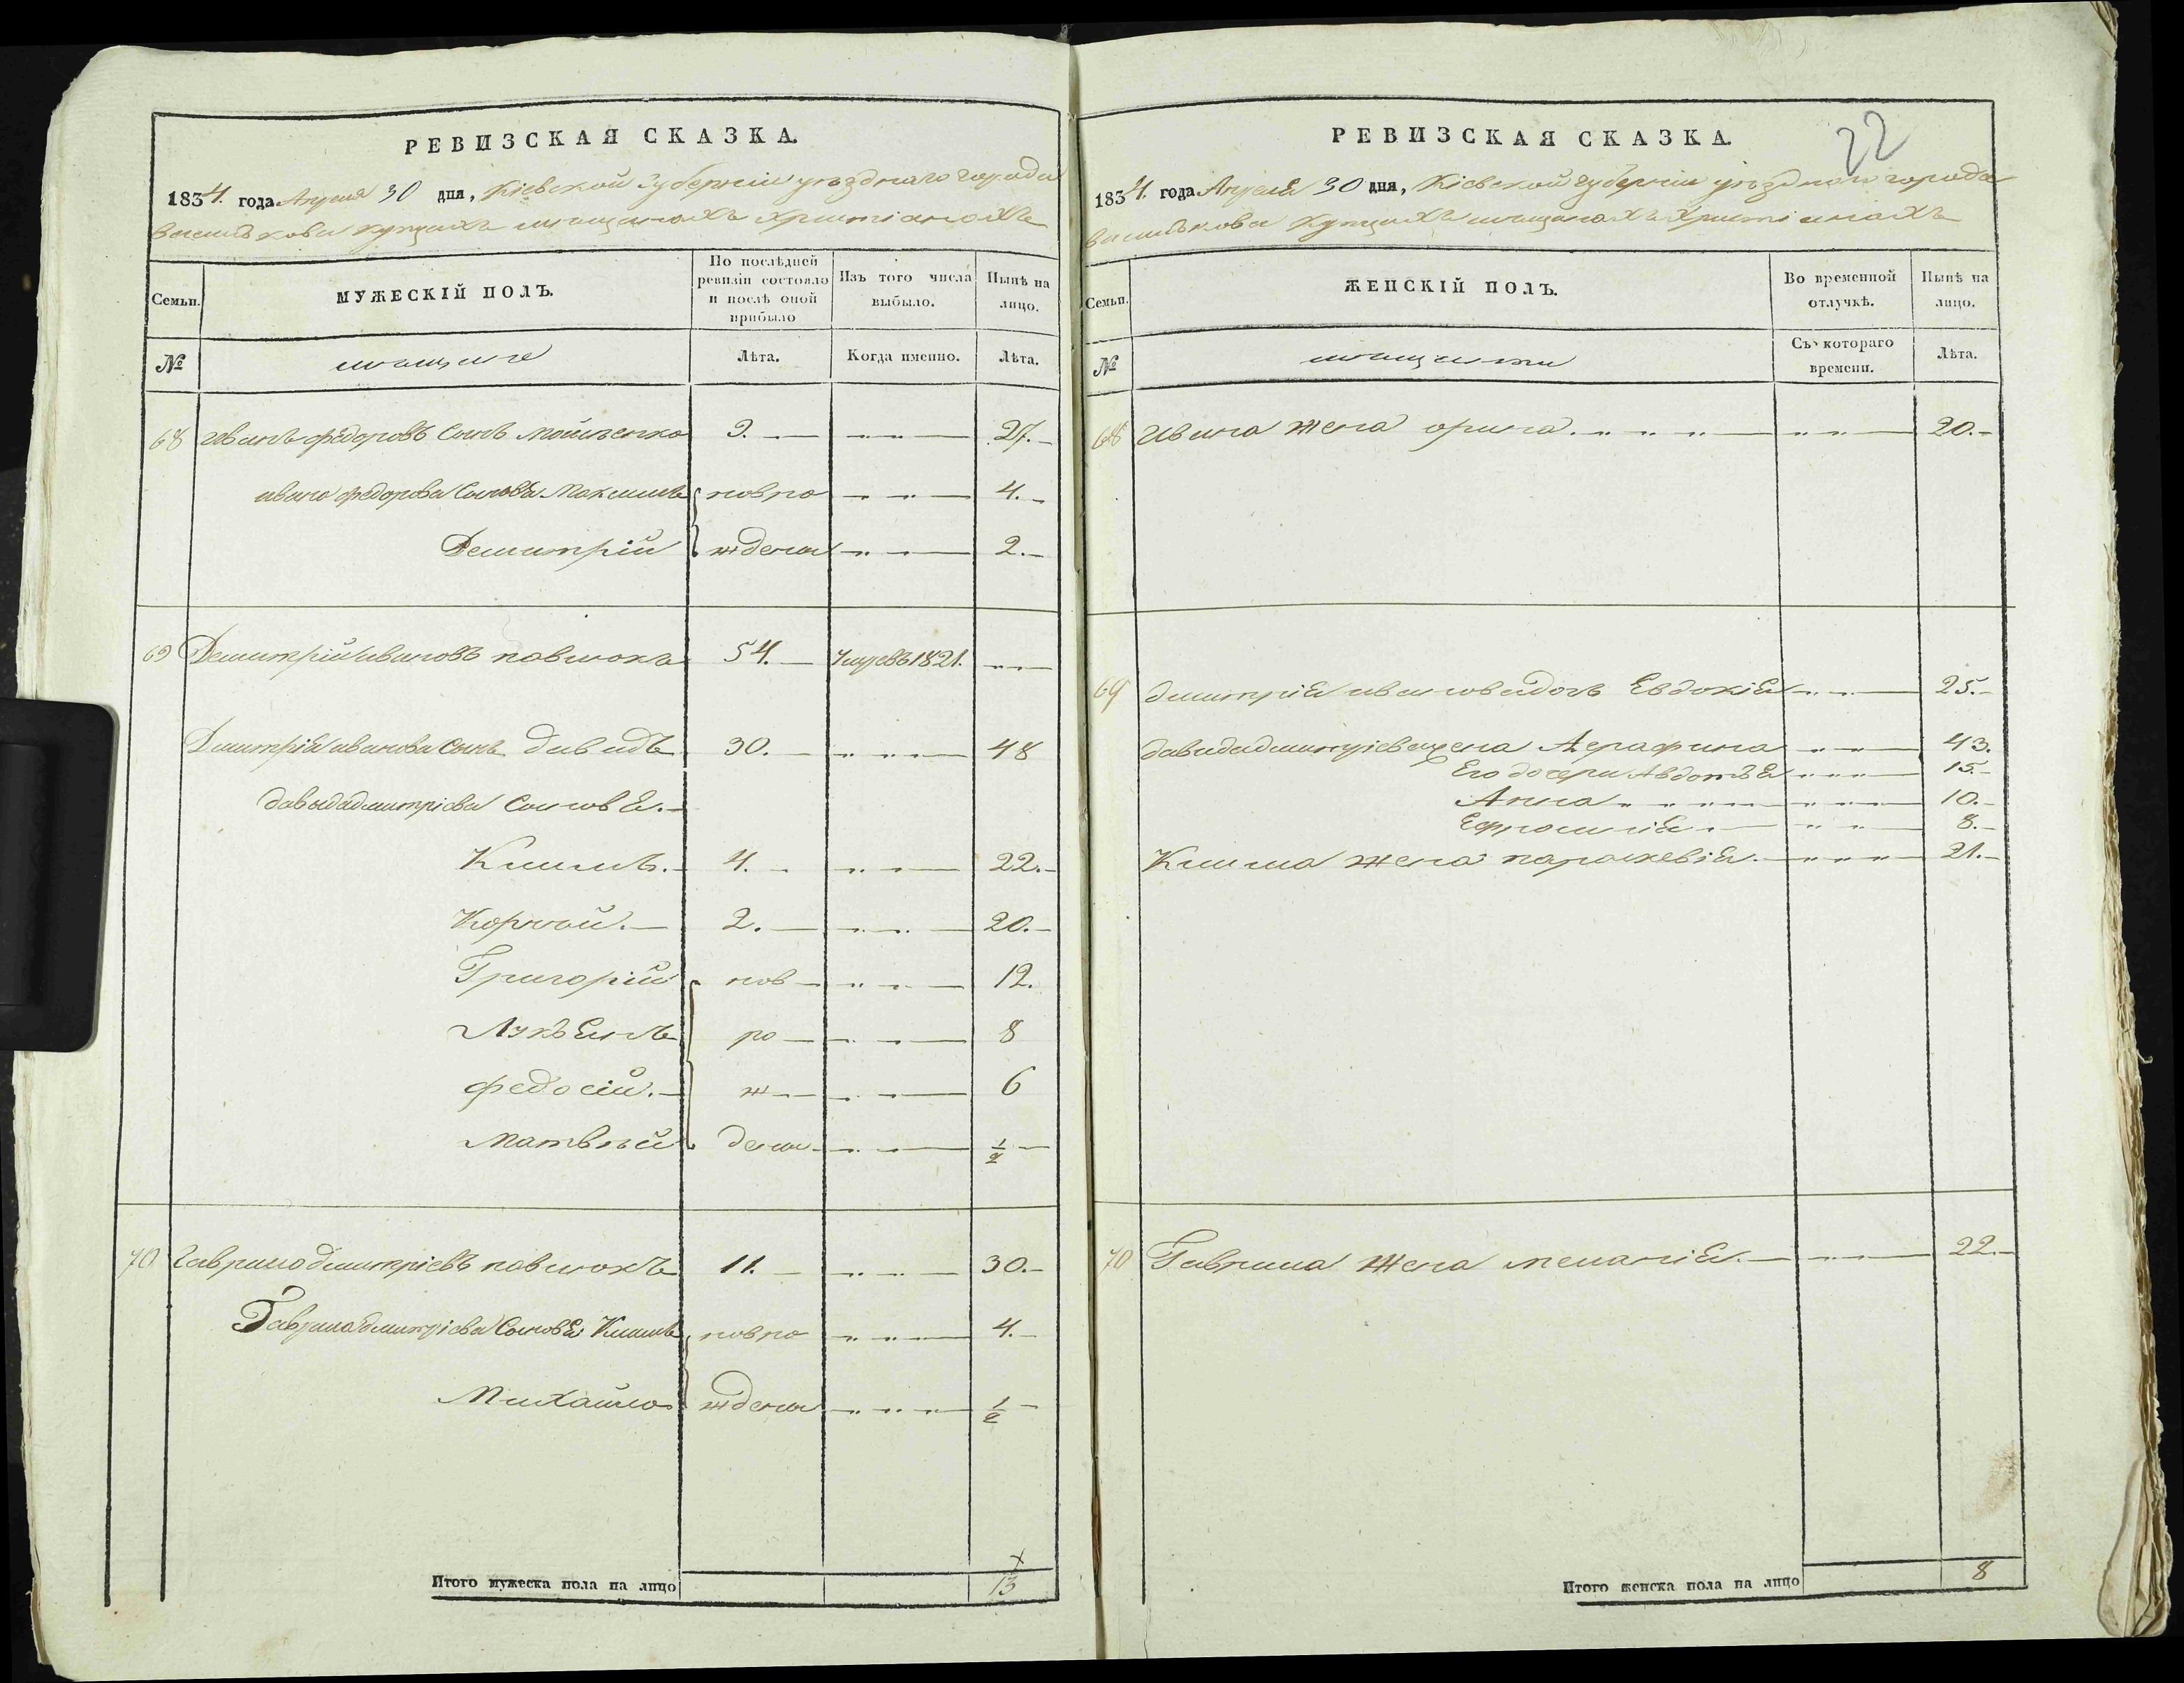 РЕВИЗСКАЯ СКАЗКА.
1834. года Апреля 30 дня, Кіевской губерніи уезднаго города
василькова купцахъ мещанахъ христіанахъ
Семьи.
МУЖЕСКІЙ ПОЛЪ.
По послѣдней ревизіи состояло и послѣ оной прибыло
Изъ того числа выбыло.
Нынѣ на лицо.
№
мещане
Лѣта.
Когда именно.
Лѣта.
68 Иванъ федоровъ Сынъ 9. 27.
ивана федорова Сыновья Максимъ новро 4.
Демитрій ждены 2.
69 Демитрій ивановъ павлюкъ 54. Умре въ 1821.
Дмитрія иванова Сынъ давидъ 30. 48
давыда дмитріева Сыновья.
Климъ. 4. 22.
Корней. 2. 20.
Григорій нов 12.
Лукьянъ ро 8
федосій. ж 6
Матвѣй дены 1/2
70 Гаврило дмитріевъ павлюкъ 11. 30.
Гаврила дмитріева Сыновья Климъ новро 4.
Михайло ждены 1/2
Итого мужеска пола на лицо 13
РЕВИЗСКАЯ СКАЗКА. 22
1834. года Апреля 30 дня, Кіевской губерніи уезднаго города
василькова Купцахъ мещанахъ христіанахъ
Семьи.
ЖЕНСКІЙ ПОЛЪ.
Во временной отлучкѣ.
Нынѣ на лицо.
№
мещанки
Съ котораго времени.
Лѣта.
68 Ивана жена орина 20.
69 дмитрія иванова дочь Евдокія 25.
давида дмитріева жена 43.
Его дочери Авдотья 15.
Анна 10.
Ефросинія 8.
Клима жена параскевія 21.
70 Гаврила жена меланія. 22.
Итого женска пола на лицо 8